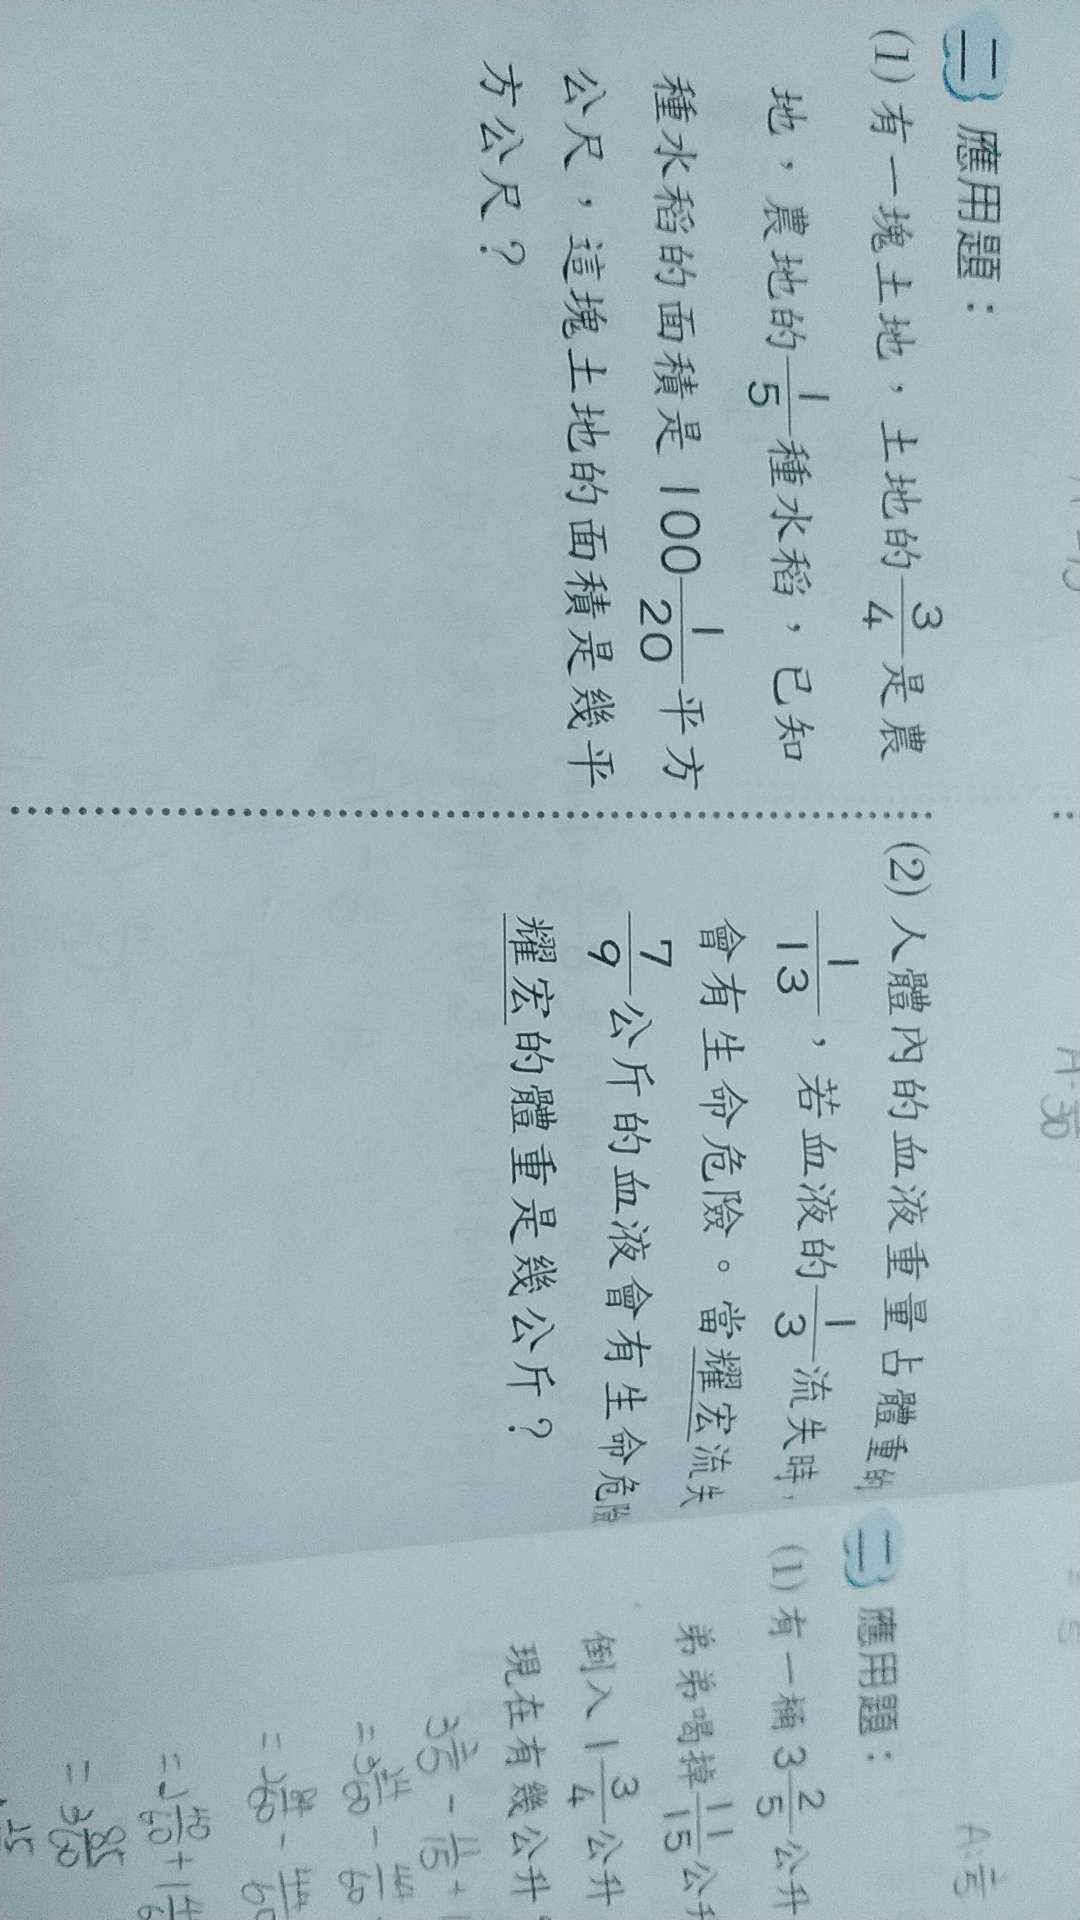 二 應用題：
(1) 有一塊土地，土地的 3/4 是農
地，農地的 1/5 種水稻，已知
種水稻的面積是 100 1/20 平方
公尺，這塊土地的面積是幾平
方公尺？
(2) 人體內的血液重量占體重的
1/13，若血液的 1/3 流失時，
會有生命危險。當耀宏流失
7/9 公斤的血液會有生命危險
耀宏的體重是幾公斤？
二 應用題：
(1) 有一桶 3 2/5 公升
弟弟喝掉 11/15 公升
倒入 1 3/4 公升
現在有幾公升
3 2/5 - 11/15 +
= 3 24/60 - 44/60
= 2 84/60 - 44/60
= 2 40/60 + 1
= 3 85/60